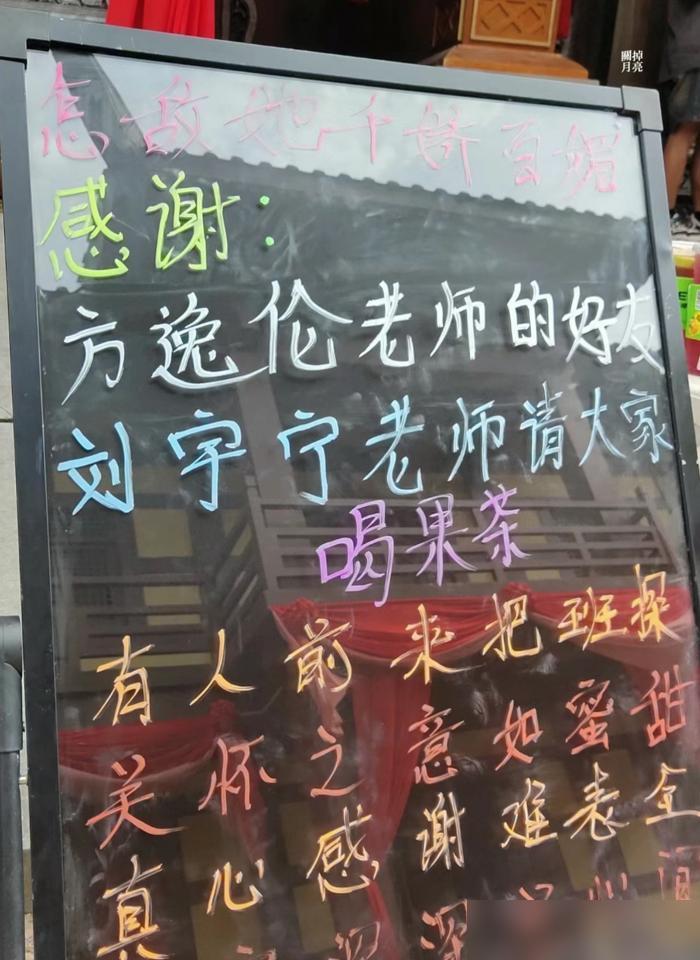 關掉
月亮
怎敌她千娇百媚
感谢:
方逸伦老师的好友
刘宇宁老师请大家
喝果茶
有人前来把班探
关怀之意如蜜甜
真心感谢难表全
深